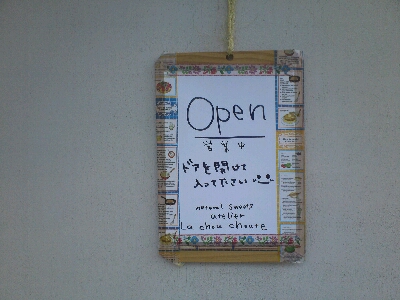 Open
営業中
ドアを開けて
入って下さい
natural sweets
atelier
La chou choute